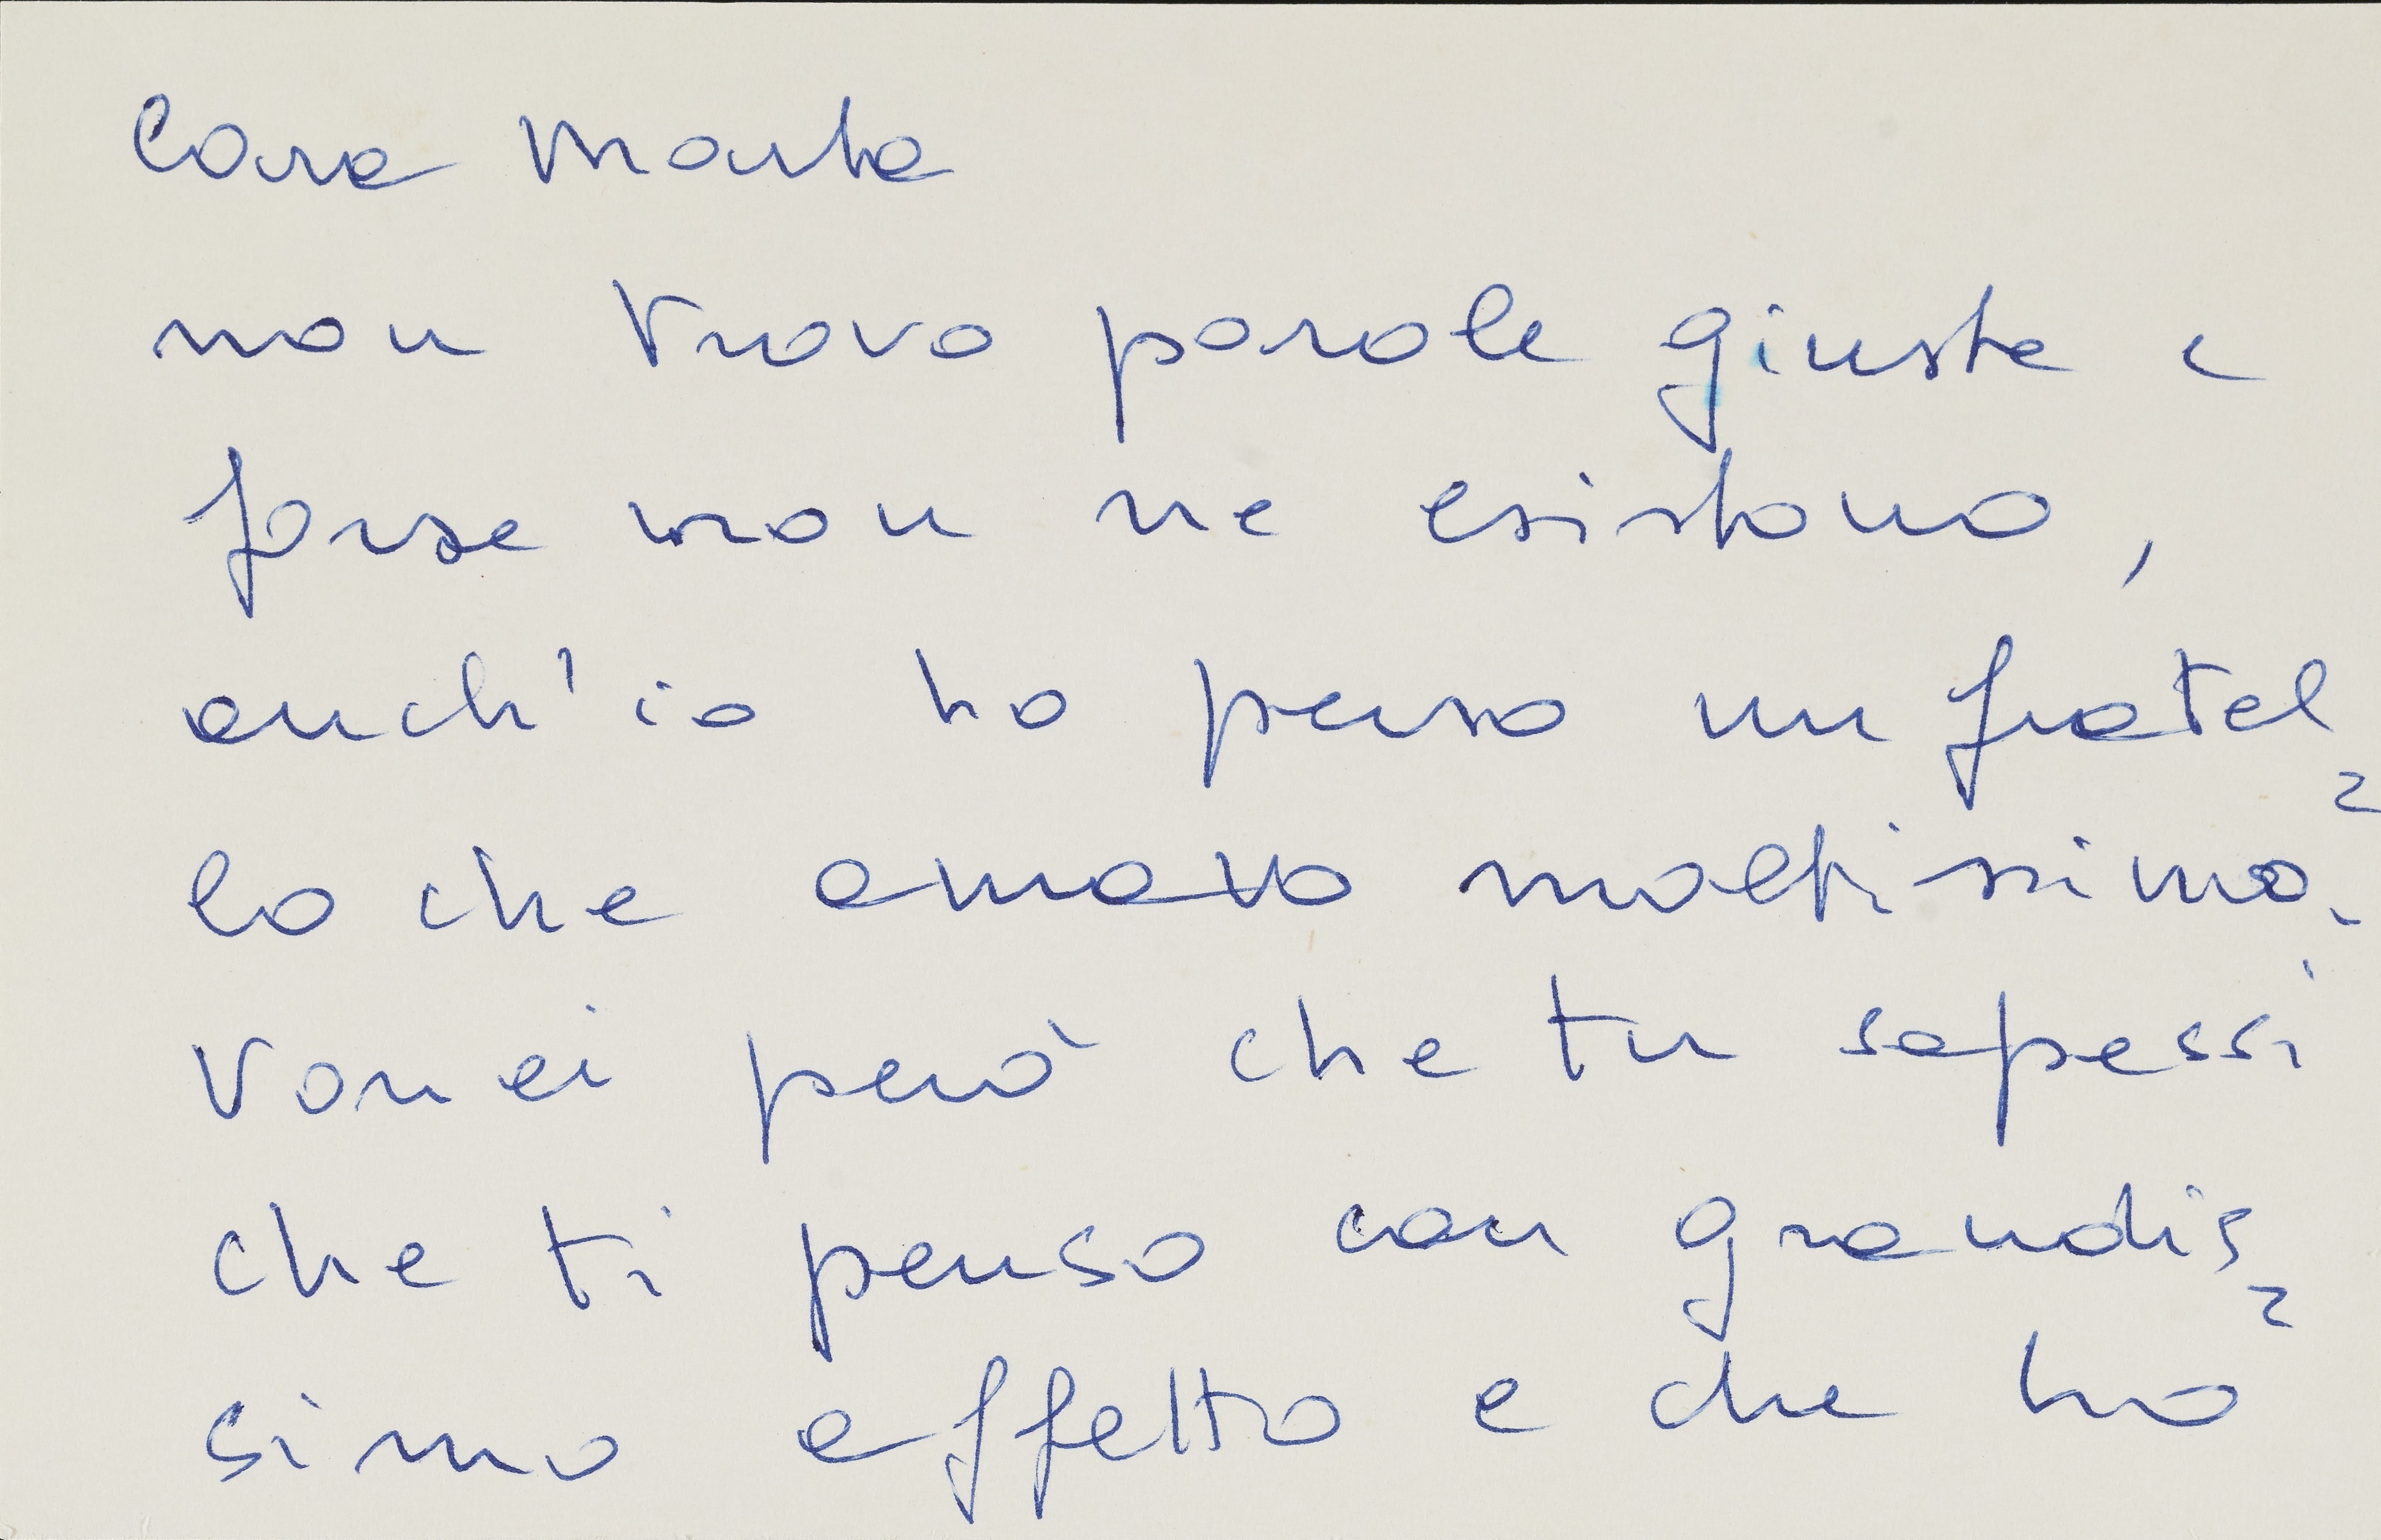 Cara Marta
non trovo parole giuste e
forse non ne esistono,
anch'io ho perso un fratel=
lo che amavo moltissimo.
Vorrei però che tu sapessi
che ti penso con grandis=
simo affetto e che ho